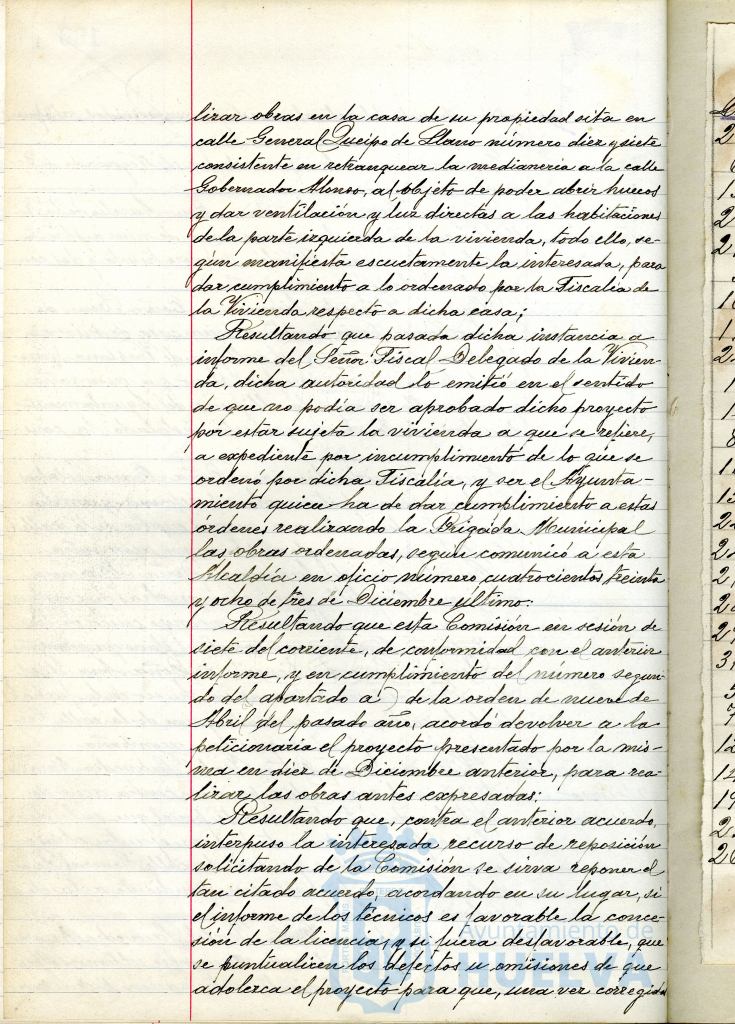 lizar obras en la casa de su propiedad sita en
calle General Queipo de Llano número diez y siete
consistente en retranquear la medianeria a la calle
Gobernador Alonso, al objeto de poder abrir huecos
y dar ventilación y luz directas a las habitaciones
de la parte izquierda de la vivienda, todo ello, se-
gún manifiesta escuetamente la interesada, para
dar cumplimiento a lo ordenado por la Fiscalía de
la Vivienda respecto a dicha casa;
Resultando que pasada dicha instancia a
informe del Señor Fiscal Delegado de la Vivien-
da, dicha autoridad lo emitió en el sentido
de que no podía ser aprobado dicho proyecto
por estar sujeta la vivienda a que se refiere,
a expediente por incumplimiento de lo que se
ordenó por dicha Fiscalía, y ser el Ayunta-
miento quien ha de dar cumplimiento a estas
órdenes realizando la Brigada Municipal
las obras ordenadas, según comunicó a esta
Alcaldía en oficio número cuatrocientos treinta
y ocho de tres de Diciembre último:
Resultando que esta Comisión en sesión de
siete del corriente, de conformidad con el anterior
informe, y en cumplimiento del número segun-
do del apartado a) de la orden de nueve de
Abril del pasado año, acordó devolver a la
peticionaria el proyecto presentado por la mis-
ma en diez de Diciembre anterior, para rea-
lizar las obras antes expresadas:
Resultando que, contra el anterior acuerdo,
interpuso la interesada recurso de reposición
solicitando de la Comisión se sirva reponer el
tan citado acuerdo, acordando en su lugar, si
el informe de los técnicos es favorable la conce-
sión de la licencia, y si fuera desfavorable, que
se puntualicen los defectos u omisiones de que
adolezca el proyecto para que, una vez corregidos
Ayuntamiento de
HUELVA